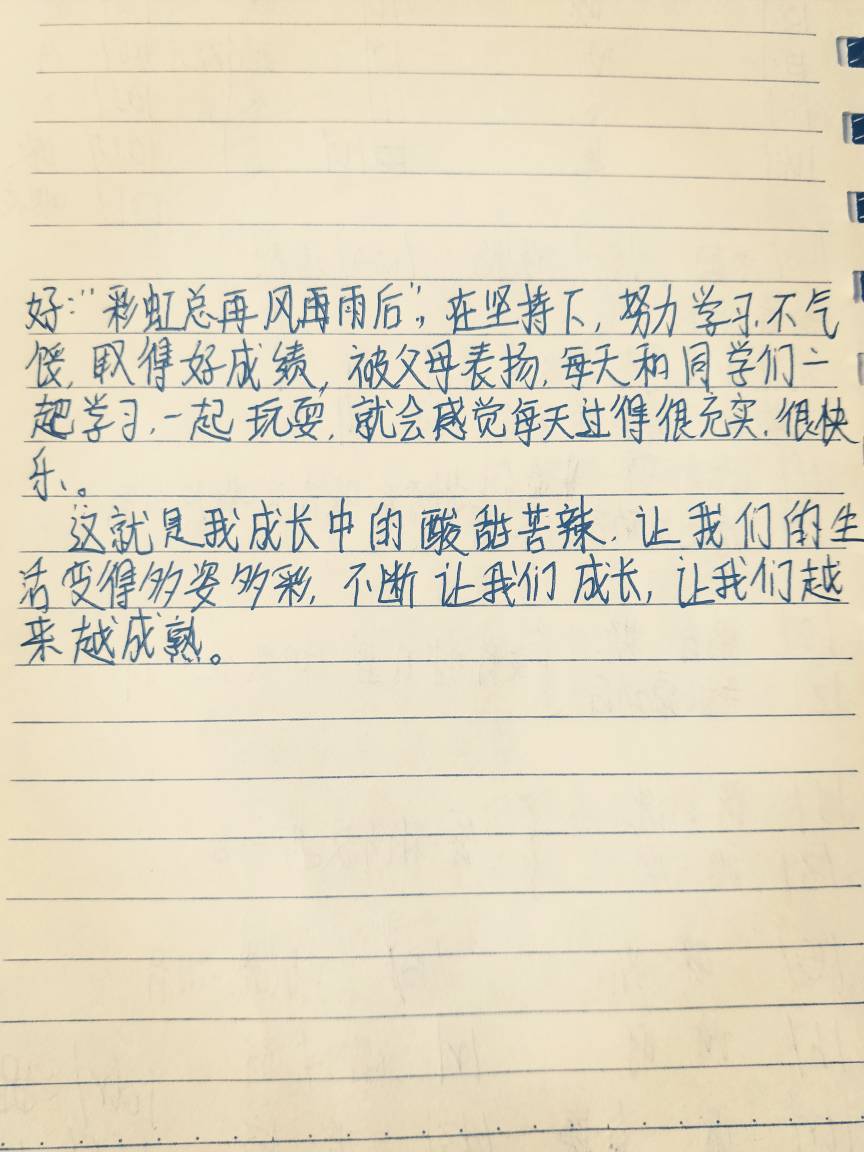 好:"彩虹总再风再雨后",在坚持下,努力学习,不气
馁,取得好成绩,被父母表扬,每天和同学们一
起学习,一起玩耍,就会感觉每天过得很充实,很快
乐。
这就是我成长中的酸甜苦辣,让我们的生
活变得多姿多彩,不断让我们成长,让我们越
来越成熟。